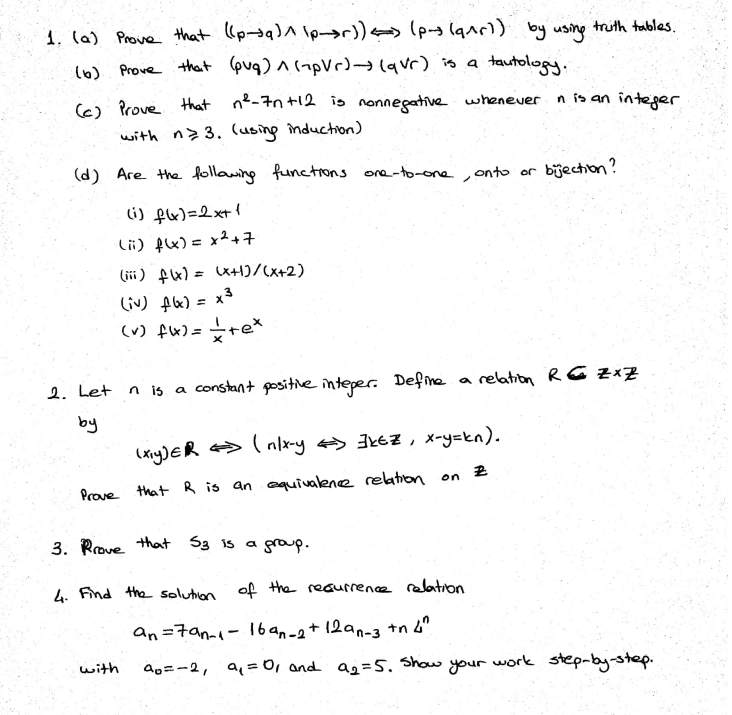 1. (a) Prove that ((p→q)∧(p→r))⟺(p→(q∧r)) by using truth tables.
(b) Prove that (p∨q)∧(¬p∨r)→(q∨r) is a tautology.
(c) Prove that n²-7n+12 is nonnegative whenever n is an integer
with n≥3. (using induction)
(d) Are the following functions one-to-one, onto or bijection?
(i) f(x)=2x+1
(ii) f(x)=x²+7
(iii) f(x)=(x+1)/(x+2)
(iv) f(x)=x³
(v) f(x)=1/x+eˣ
2. Let n is a constant positive integer. Define a relation R⊆ℤ×ℤ
by
(x,y)∈R ⟺ (n|x-y ⟺ ∃k∈ℤ, x-y=kn).
Prove that R is an equivalence relation on ℤ
3. Prove that S₃ is a group.
4. Find the solution of the recurrence relation
aₙ=7aₙ₋₁-16aₙ₋₂+12aₙ₋₃+n4ⁿ
with a₀=-2, a₁=0, and a₂=5. Show your work step-by-step.